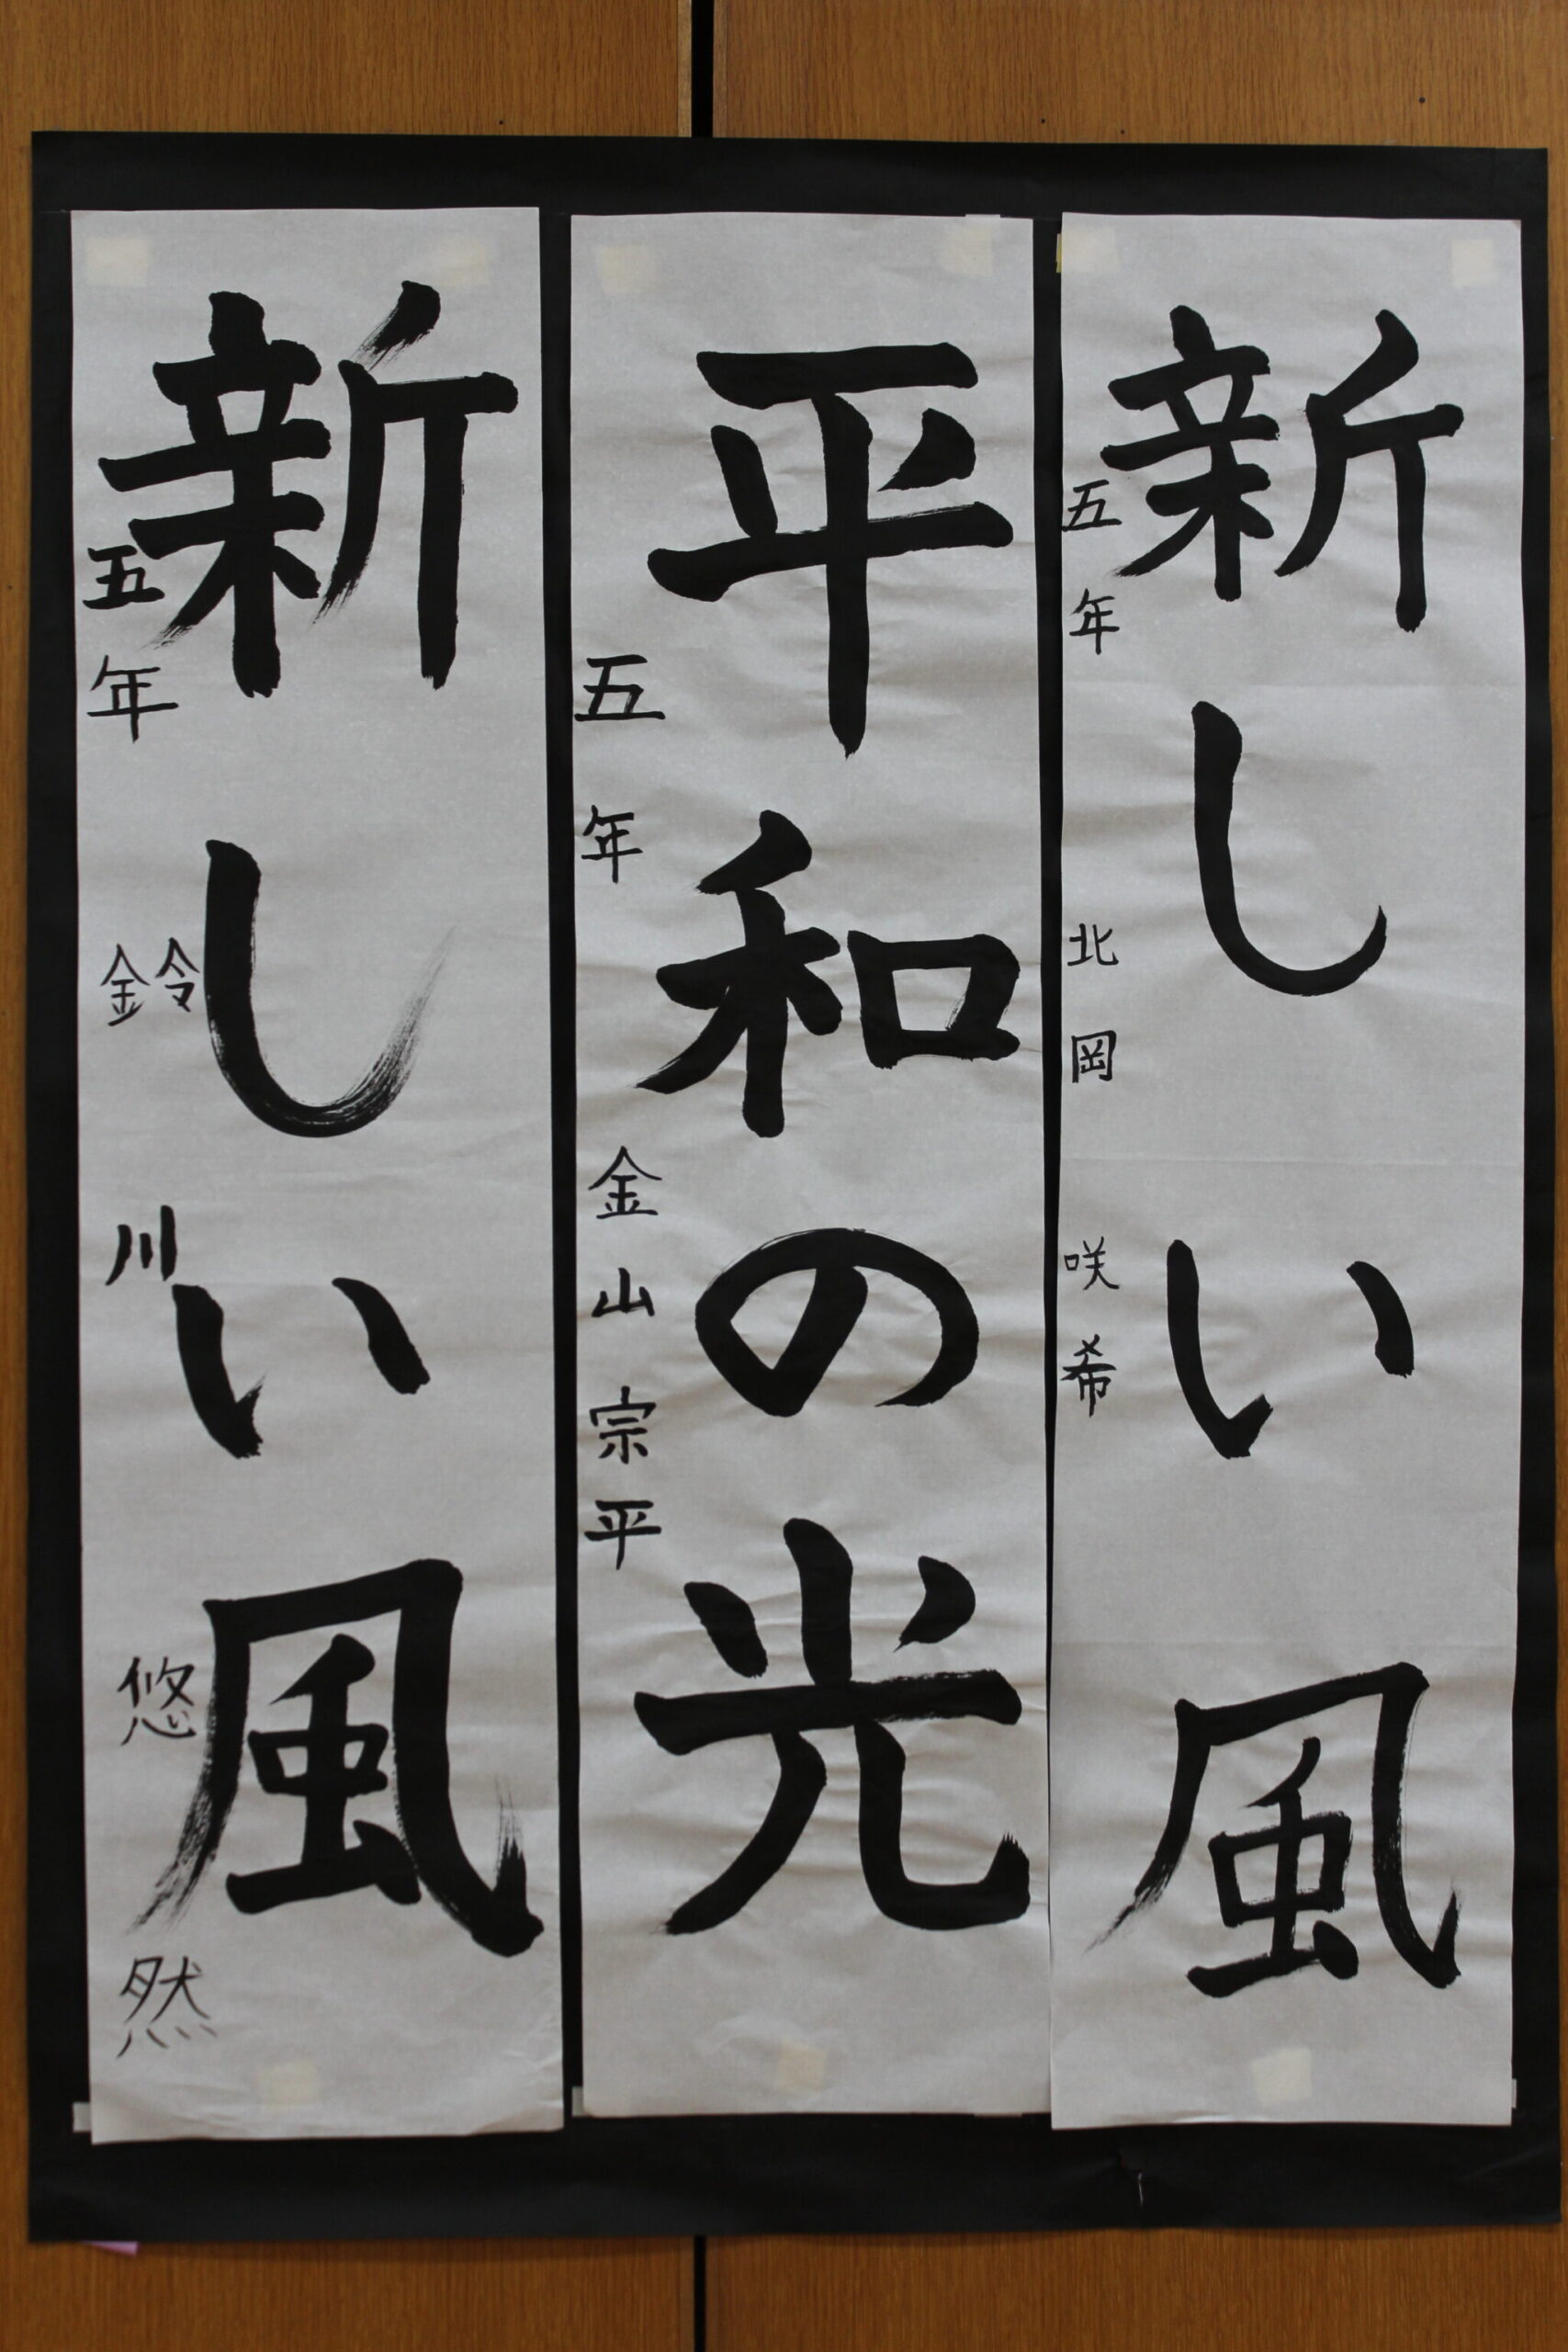 新しい風
五年 北岡 咲希
平和の光
五年 金山宗平
新しい風
五年 鈴川 悠然